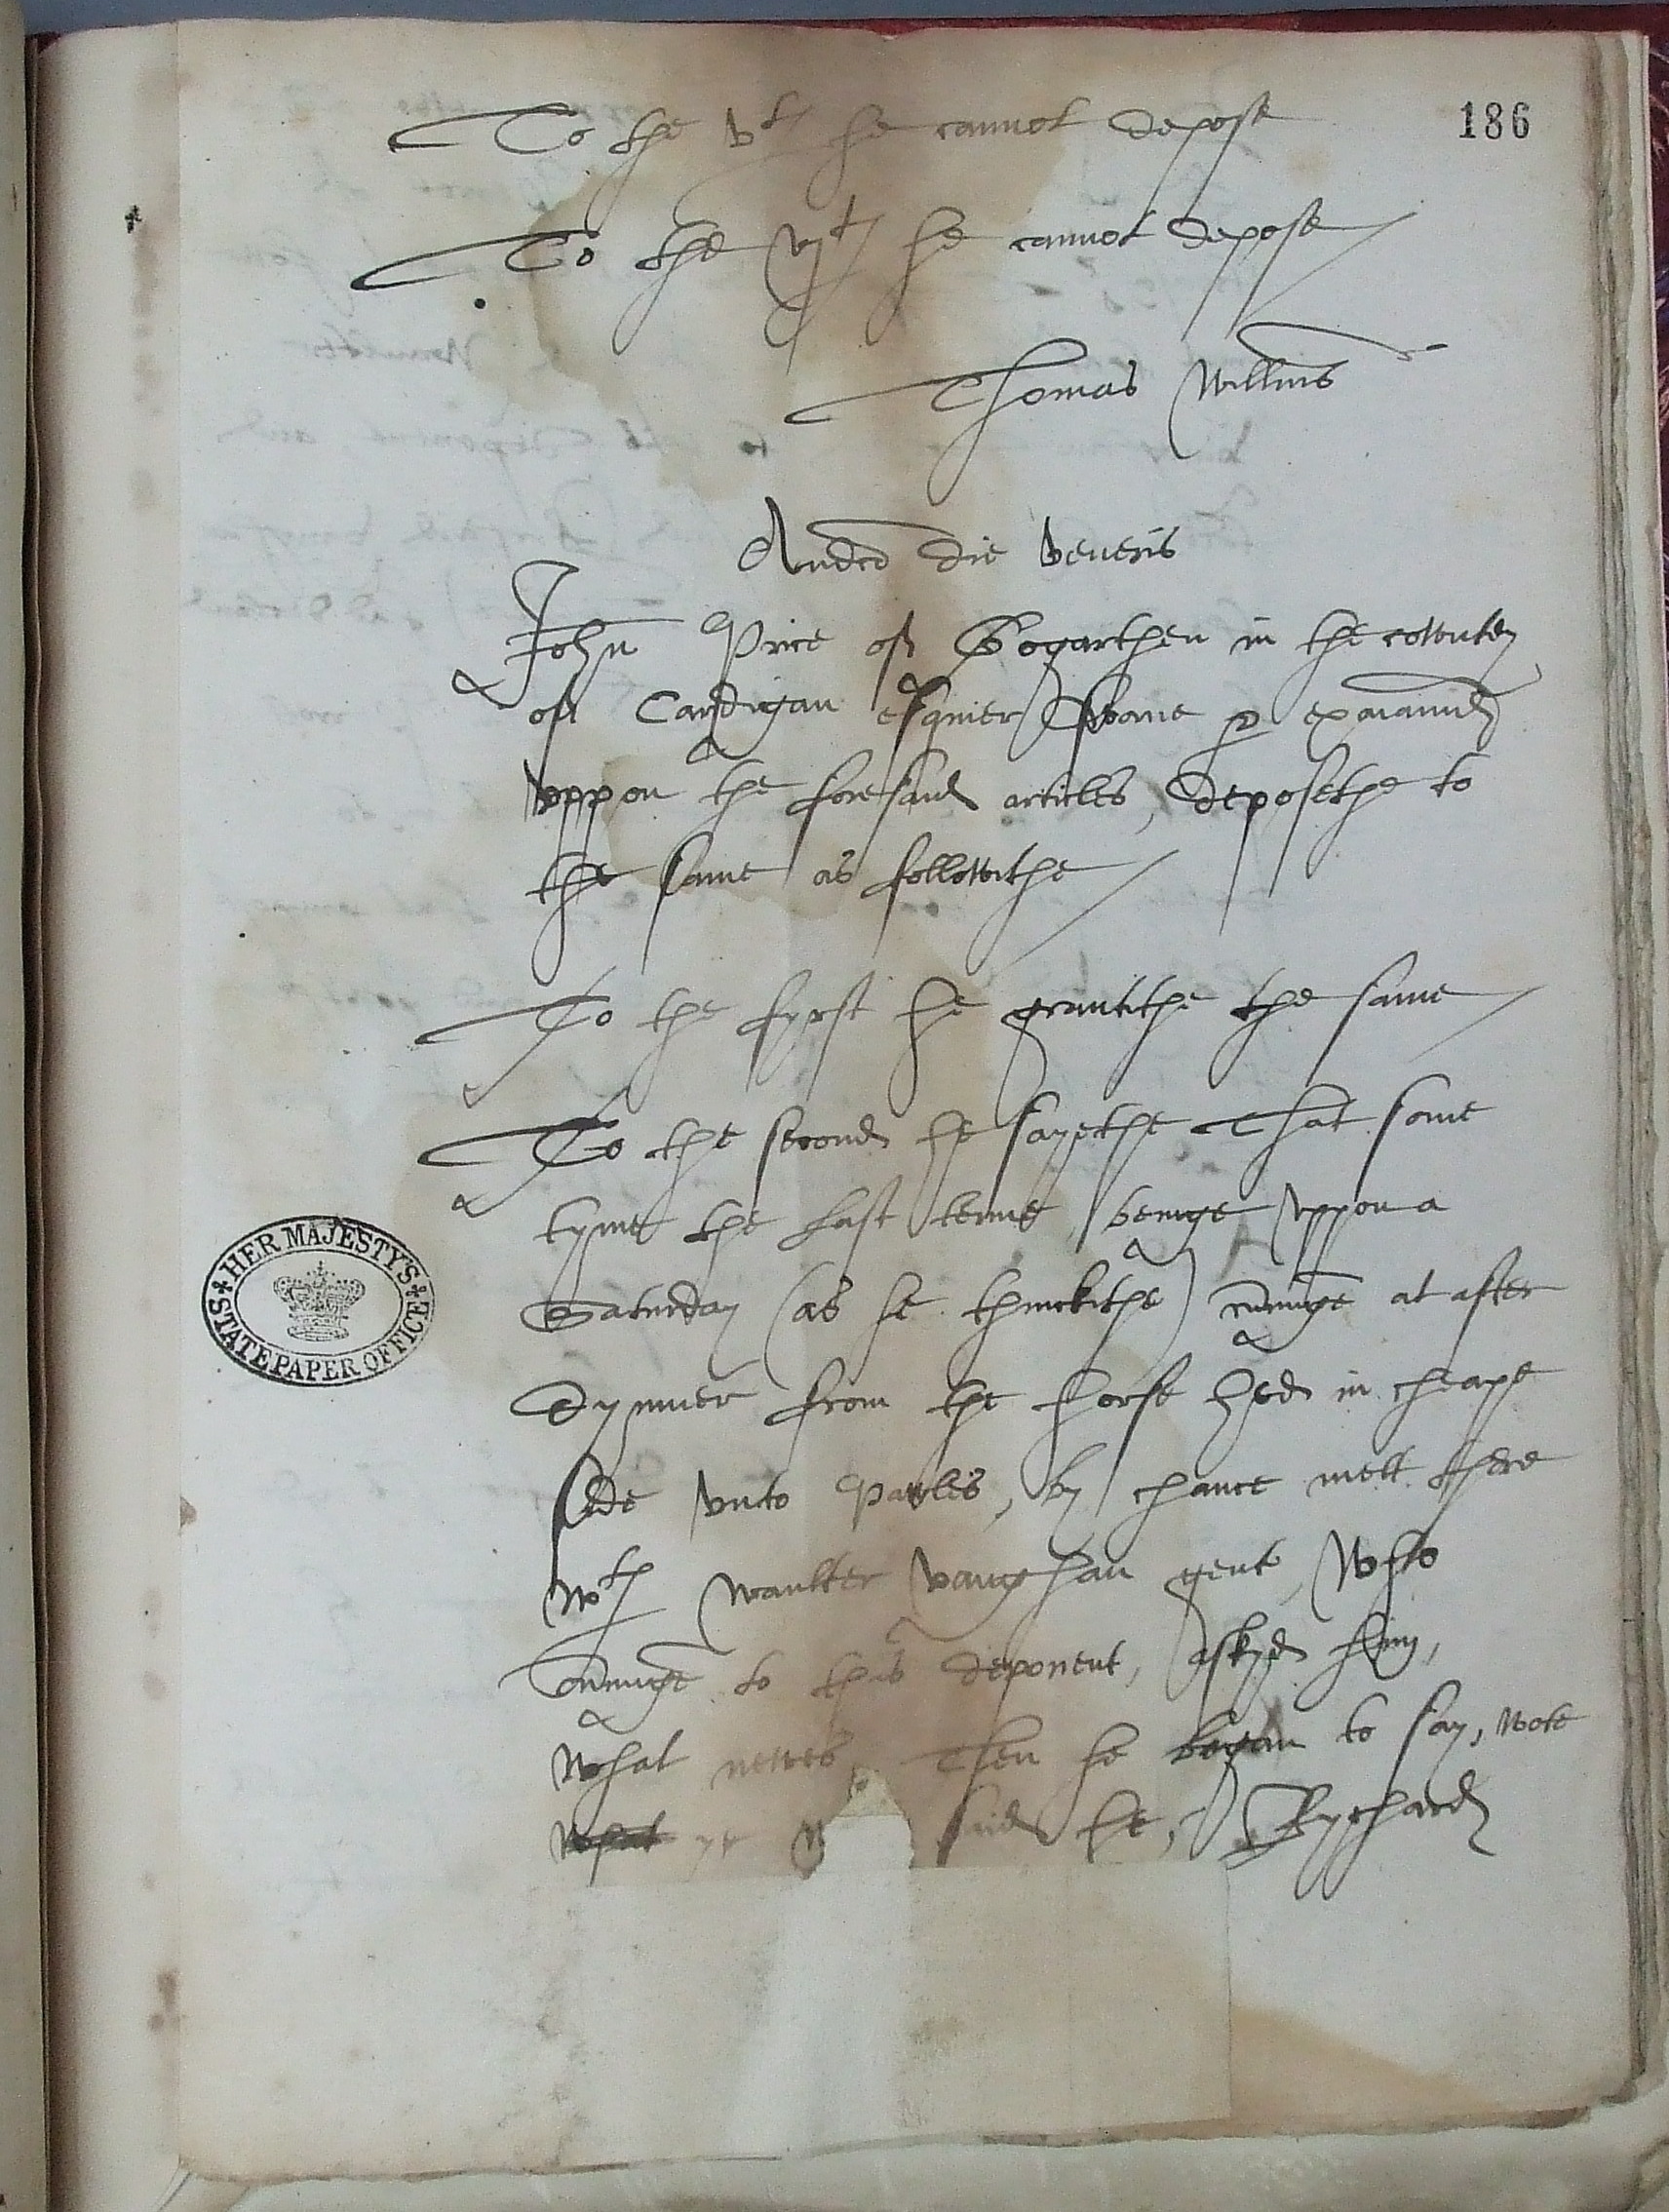 186
To the vth he cannot depose
To the vjt he cannot depose
Thomas Willms
die veneris
John Price of Gogarthen in the cowntey
of Cardigan esquier sworne & exaiamined
vppon the foresaid articles, deposethe to
the same as followithe
To the fyrst he grantithe the same
To the second he sayethe That some
tyme the last terme, beinge vppon a
Saturday (as he thinckithe) cominge at after
Dynner from the horse hed in cheape
side vnto Pawles, by chance mett there
wth Waulter Vaughan gent, Who
cominge to this deponent, askyd him,
What newes, Then he began to say, wote
What ye said he, Rychard
HER MAJESTY'S
STATE PAPER OFFICE